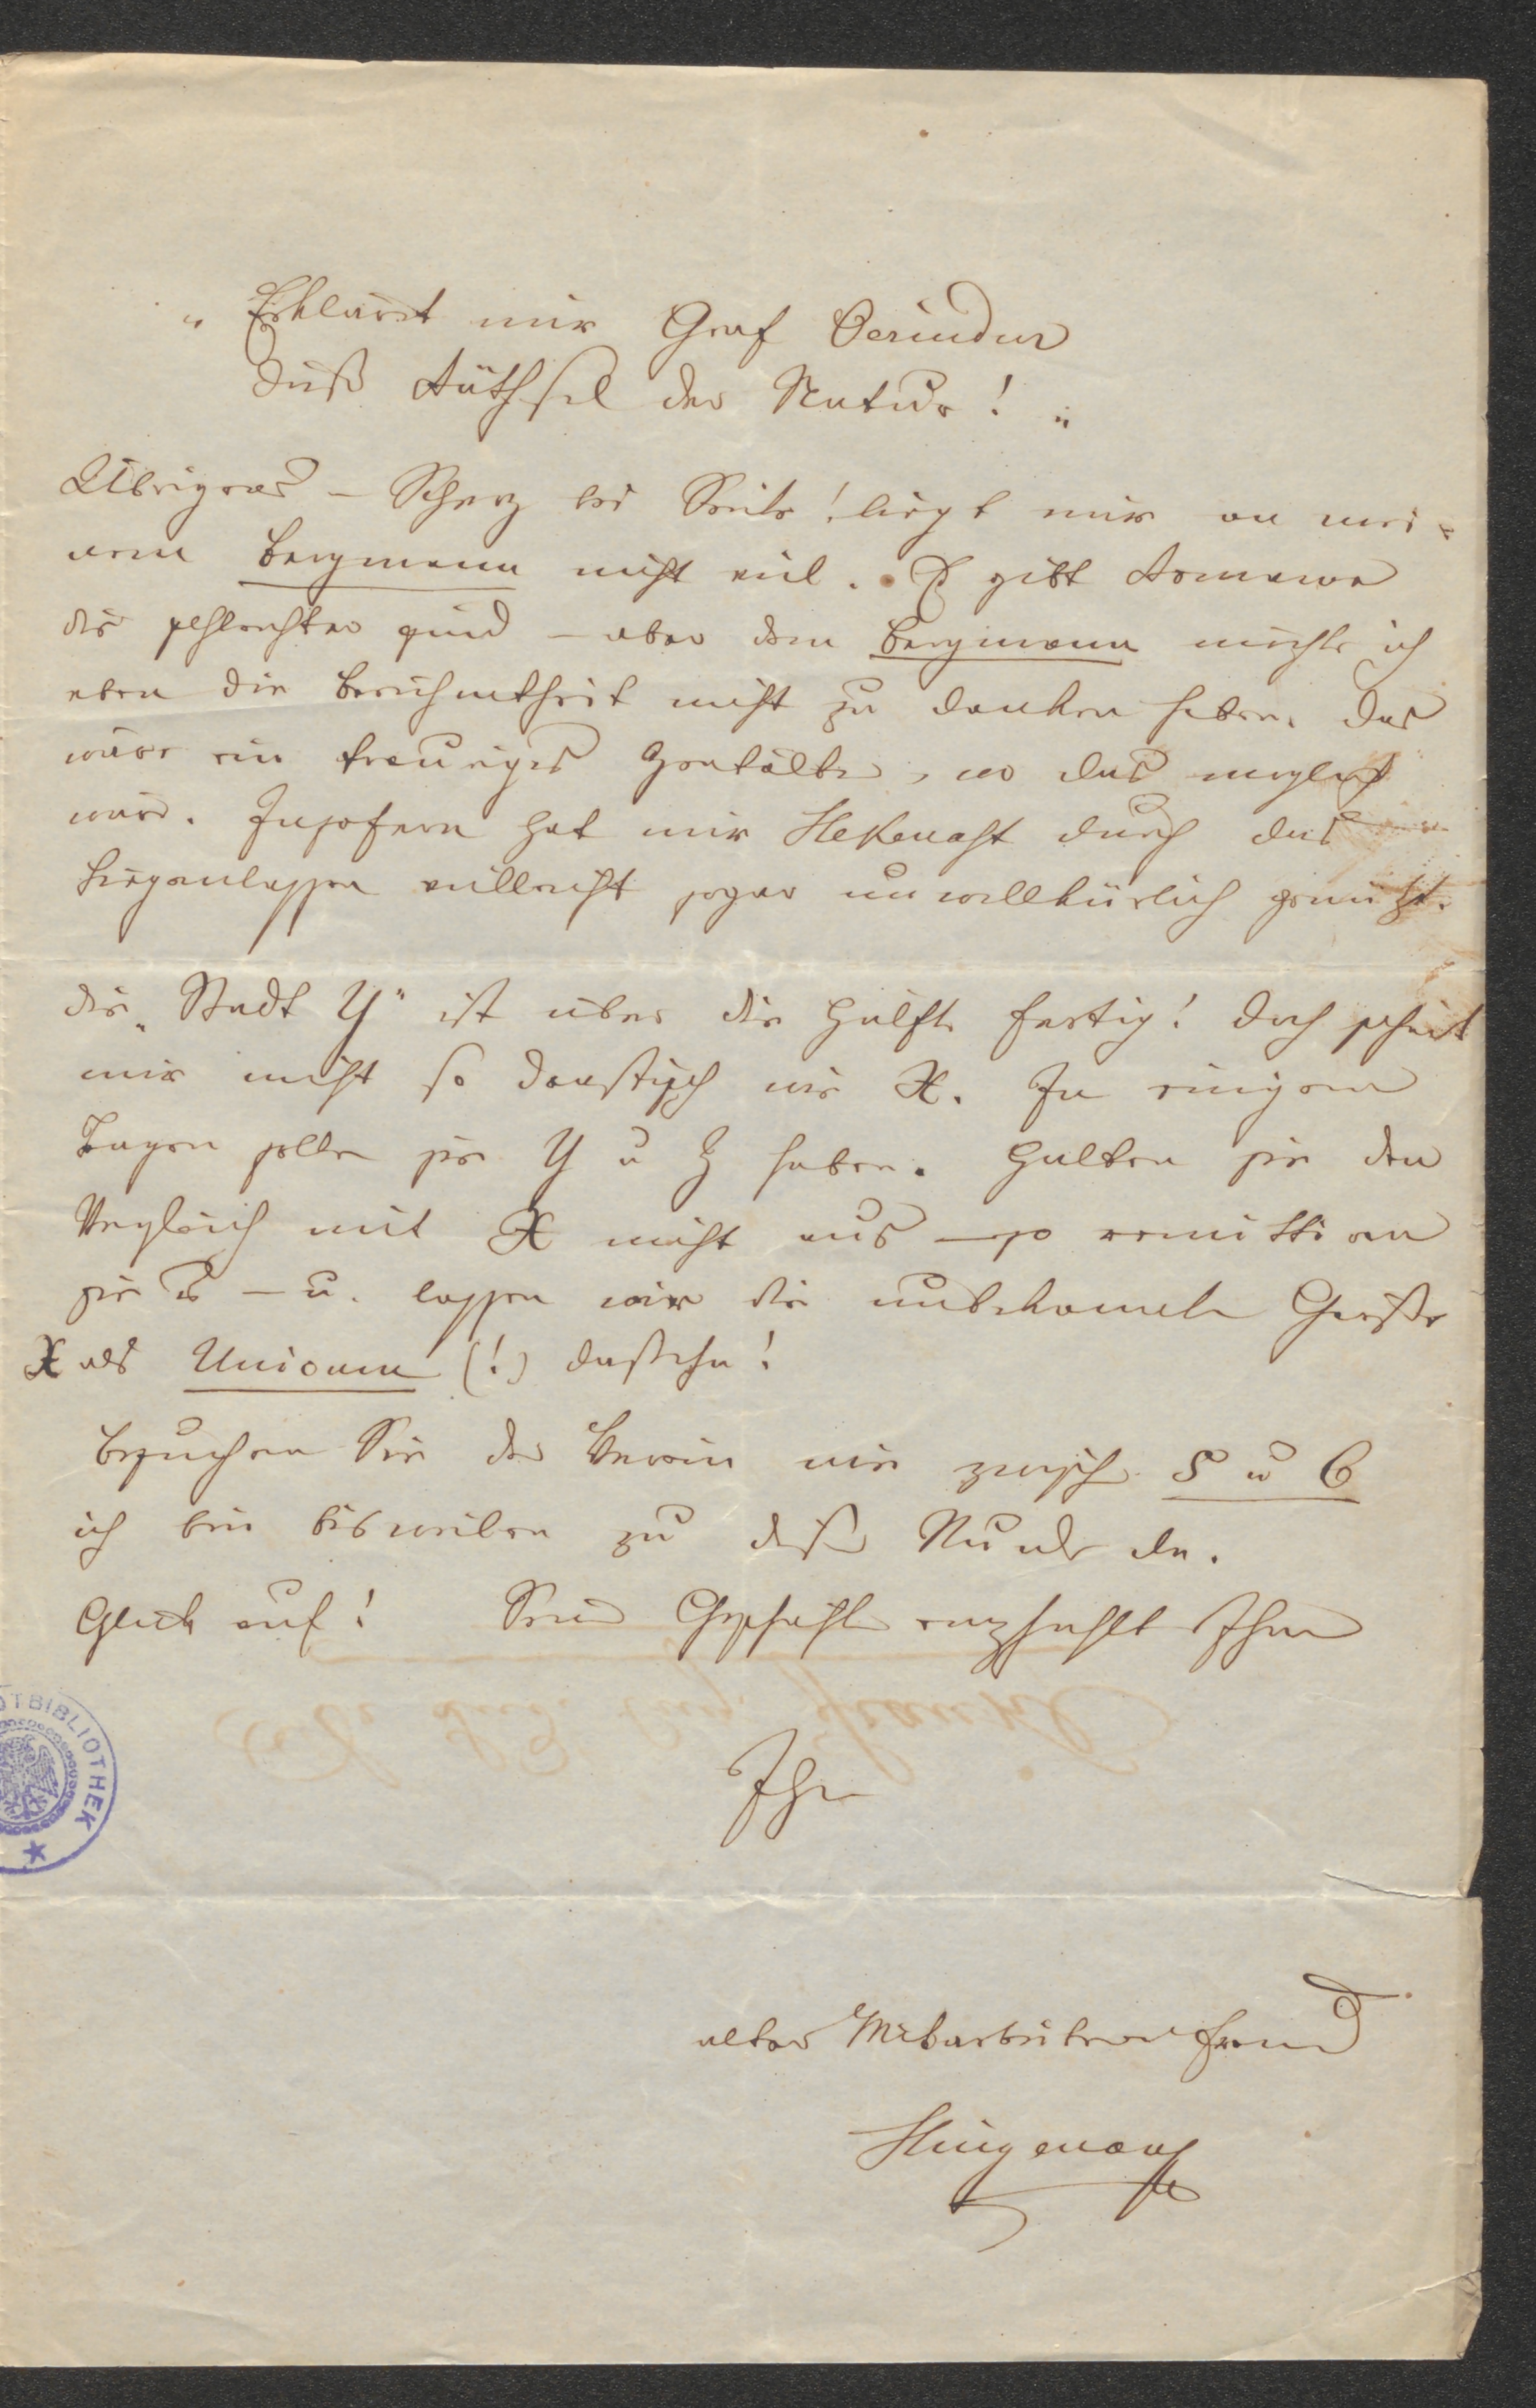 „Erklärt mir Graf Oerindur
Dieß Räthsel der Natur!"
Übrigens – Scherz bei Seite! liegt mir an mei=
nem Bergmann nicht viel. Es gibt Romane
die schlechter sind – aber dem Bergmann möchte ich
eben die Berühmtheit nicht zu danken haben. Das
wäre ein trauriges Zeitalter, wo das möglich
wäre. Insofern hat mir Hekenast durch das
Liegenlassen vielleicht sogar unwillkürlich genützt.
Die „Stadt Y" ist über die Hälfte fertig! Doch scheint
mir nicht so drastisch wie X. In einigen
Tagen sollen sie Y u Z haben. Halten sie den
Vergleich mit X nicht aus – so remittiren
sie es – u. lassen wir die unbekannte Größe
X als Unicum (!) dastehn!
Besuchen Sie den Verein nie zwisch. 5 u 6
ich bin bisweilen zu dieser Stunde da.
Glück auf! Seine Geschichte erzählt Ihnen
Ihr
alter Mitarbeiter u Freund
Hingenau
OTBIBLIOTHEK